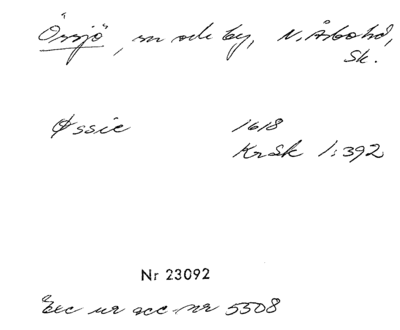 "Örsjö", sn och by, N. Åsbohd,
Sk.
Øssie 1618
KrSk 1:392
Nr 23092
Exc ur acc nr 5508